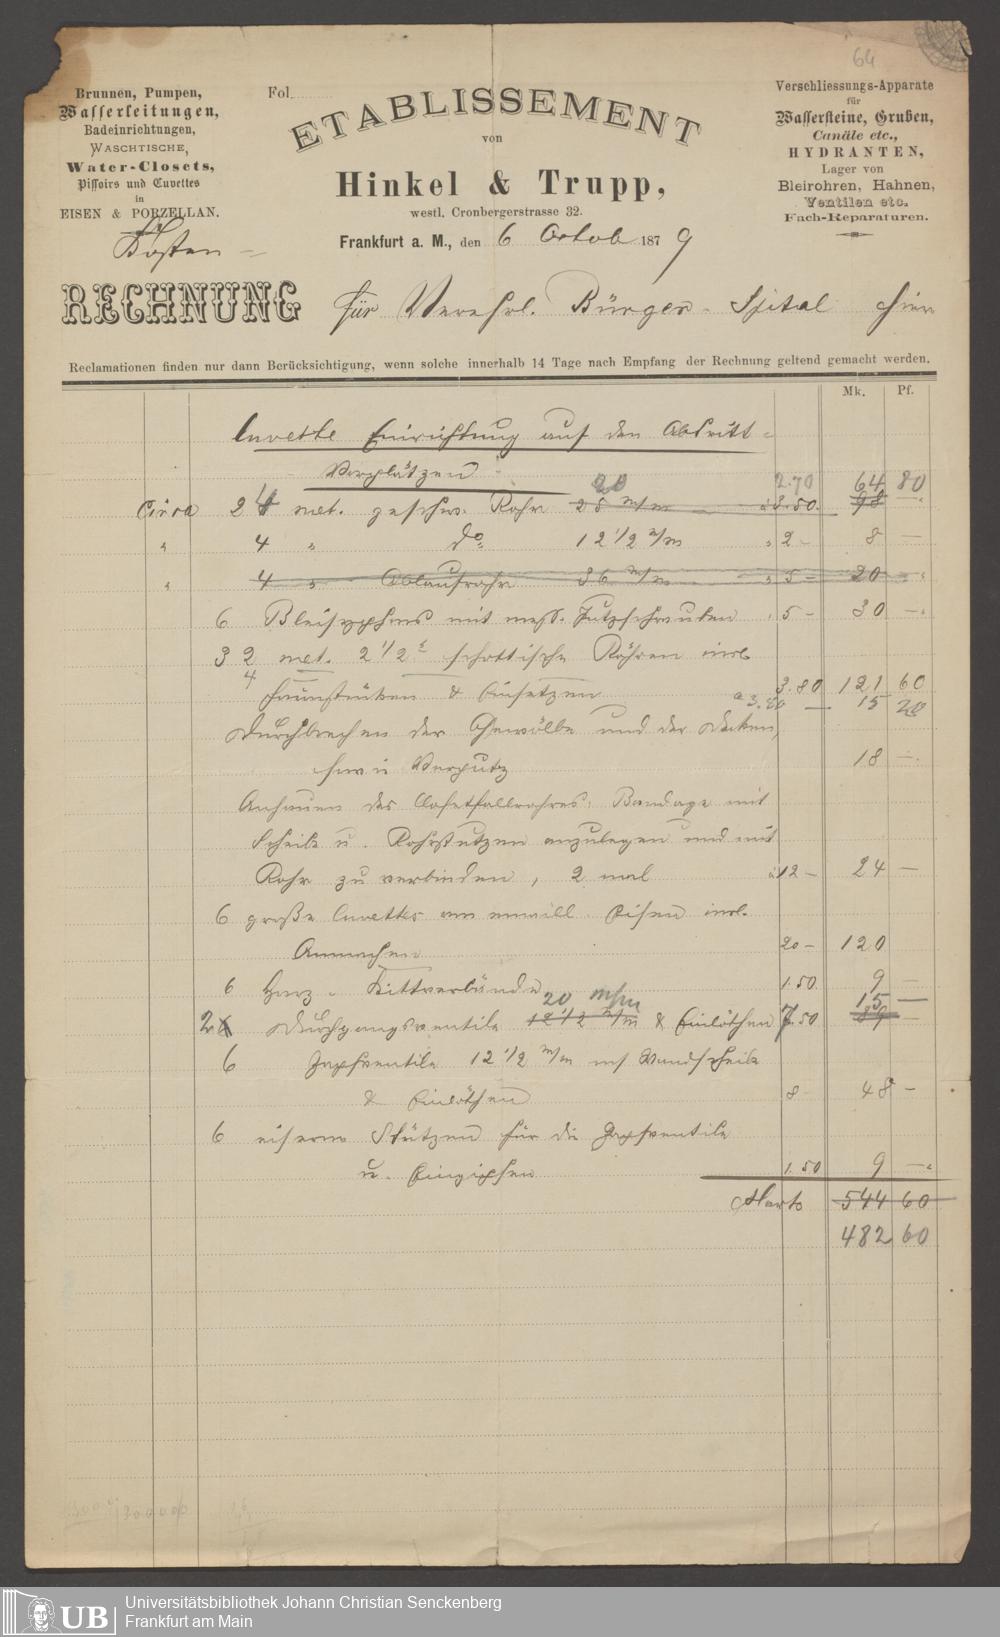 64
Brunnen, Pumpen,
Wasserleitungen,
Badeinrichtungen,
WASCHTISCHE,
Water-Closets,
Pissoirs und Cuvettes
in
EISEN & PORZELLAN.
Fol.
ETABLISSEMENT
von
Hinkel & Trupp,
westl. Cronbergerstrasse 32.
Frankfurt a. M., den 6 Octob 1879
Verschliessungs-Apparate
für
Wassersteine, Gruben,
Canäle etc.,
HYDRANTEN,
Lager von
Bleirohren, Hahnen,
Ventilen etc.
Fach-Reparaturen.
Kosten
RECHNUNG für Verehrl. Bürger-Spital hier
Reclamationen finden nur dann Berücksichtigung, wenn solche innerhalb 14 Tage nach Empfang der Rechnung geltend gemacht werden.
Mk. Pf.
Cuvette Einrichtung auf den Abtritt-
Vorplätzen
20 2.70 64 80
Circa 24 met. geschw. Rohr 25 m/m à 3.50. 98 —
" 4 " do 12 1/2 m/m " 2 - 8 —
" 4 " Ablaufrohr 36 m/m " 5 - 20 -
6 Bleisyphons mit mess. Putzschrauben " 5 - 30 —
32 met. 2 1/2 " schottische Röhren incl.
4 Faconstücken & Einsetzen 3.80 121 60
a 3.80 — 15 20
Durchbrechen der Gewölbe und der Decken,
sowie Verputz 18 —
Anhauen des Closetfallrohres, Bandage mit
Scheibe u. Rohrstutzen anzulegen und mit
Rohr zu verbinden, 2 mal à 12 - 24 —
6 große Cuvettes von emaill. Eisen incl.
Anmachen 20 - 120
6 Harz- Kittverbände 1.50 9 —
20 m/m 15 —
2 Durchgangsventile 12 1/2 m/m & Einlöthen 7.50
6 Zapfventile 12 1/2 m/m mit Wandscheibe
& Einlöthen 8 - 48 -
6 eiserne Stützen für die Zapfventile
u. Eingipsen 1.50 9 —
Mark 544 60
482 60
UB
Universitätsbibliothek Johann Christian Senckenberg
Frankfurt am Main